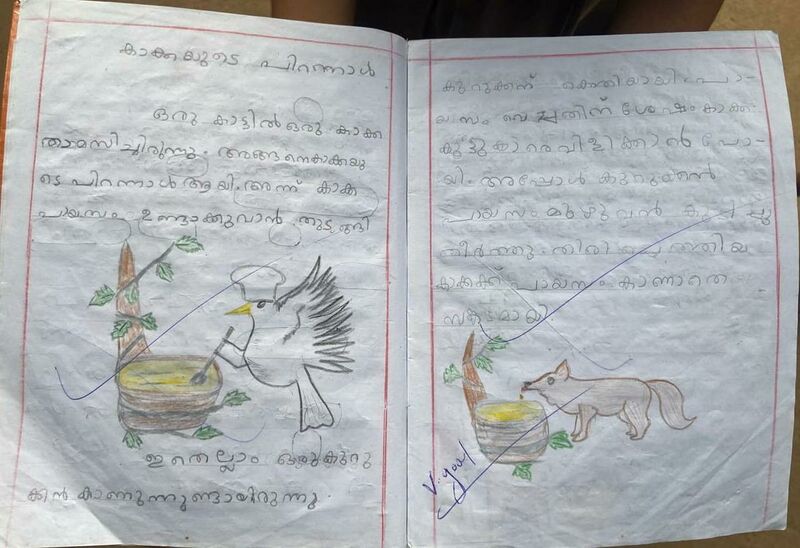 കാക്കയുടെ പിറന്നാൾ
ഒരു കാട്ടിൽ ഒരു കാക്ക
താമസിച്ചിരുന്നു. അങ്ങനെകാക്കയു
ടെ പിറന്നാൾ ആയി. അന്ന് കാക്ക
പായസം ഉണ്ടാക്കുവാൻ തുടങ്ങി
ഇതെല്ലാം ഒരു കുറു
ക്കൻ കാണുന്നുണ്ടായിരുന്നു.
കുറുക്കന് കൊതിയായി. പാ-
യസം വെച്ചതിന് ശേഷം കാക്ക
കൂട്ടുകാരെ വിളിക്കാൻ പോ-
യി. അപ്പോൾ കുറുക്കൻ
പായസം മുഴുവൻ കുടിച്ചു
തീർത്തു. തിരിച്ചെത്തിയ
കാക്കക്ക് പായസം കാണാതെ
സങ്കടമായി
V. good